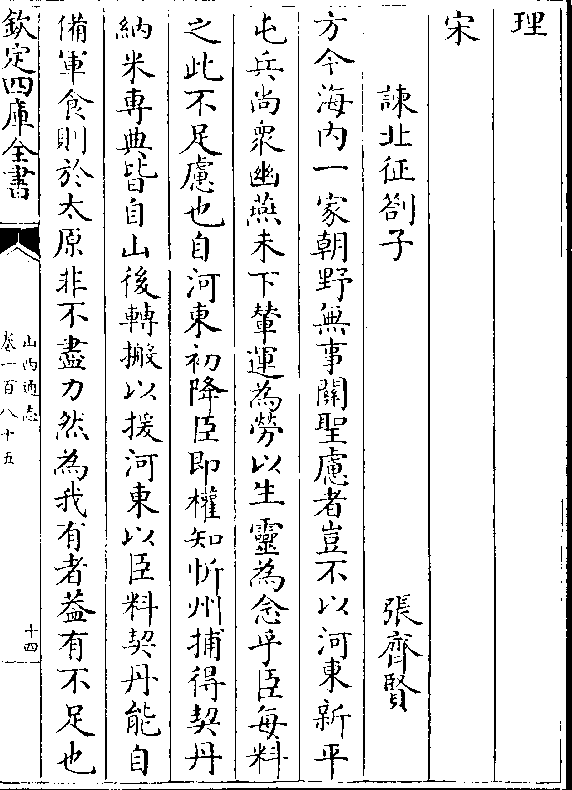 理
宋
諫北征劄子 張齊賢
方今海内一家朝野無事關聖慮者豈不以河東新平
屯兵尚衆幽燕未下輦運為勞以生靈為念乎臣每料
之此不足慮也自河東初降臣即權知忻州捕得契丹
納米専典皆自山後轉搬以援河東以臣料契丹能自
備軍食則於太原非不盡力然為我有者葢有不足也
欽定四庫全書
山西通志
卷一百八十五
十四